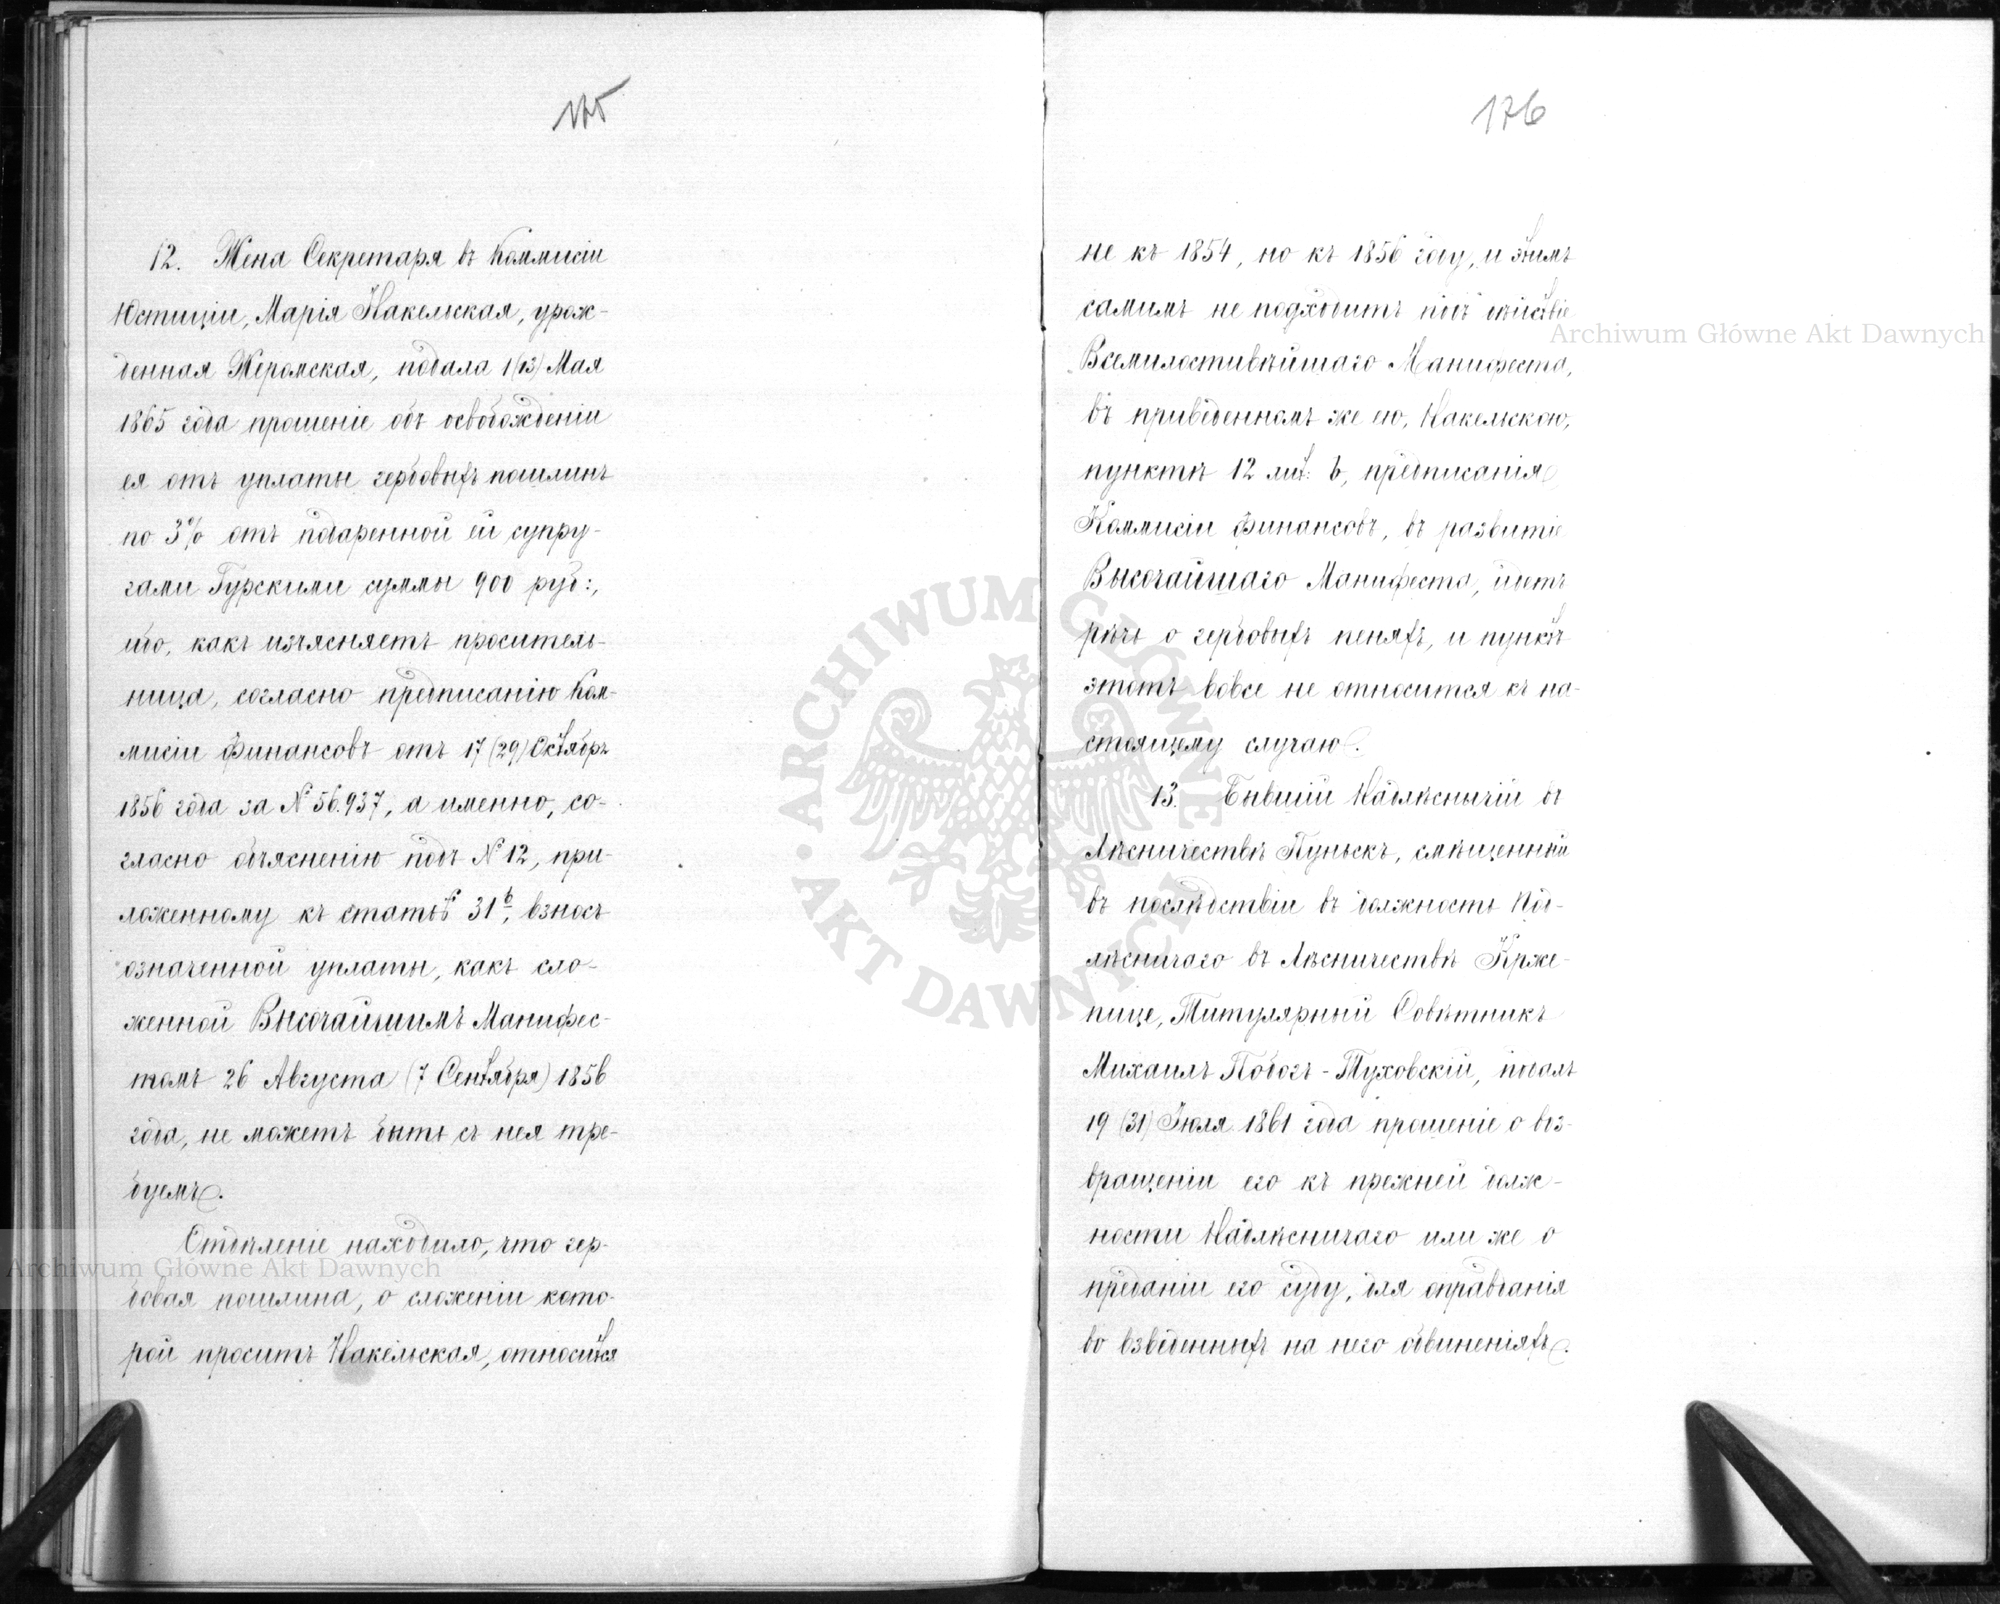 175
12. Жена Секретаря въ Коммисіи
Юстиціи, Марія Накельская, урож-
денная Жеромская, подала 1 (13) Мая
1865 года прошеніе объ освобожденіи
ея отъ уплаты гербовыхъ пошлинъ
по 3% отъ подаренной ей супру-
гами Гурскими суммы 900 руб:,
ибо, какъ изъясняетъ проситель-
ница, согласно предписанію Ком-
мисіи Финансовъ отъ 17 (29) Октября
1856 года за № 56.937, а именно, со-
гласно объясненію подъ № 12, при-
ложенному къ статьѣ 31 б, взносъ
означенной уплаты, какъ сло-
женной Высочайшимъ Манифес-
томъ 26 Августа (7 Сентября) 1856
года, не можетъ быть съ нея тре-
буемъ.
Отдѣленіе находило, что гер-
бовая пошлина, о сложеніи кото-
рой проситъ Накельская, относится
176
не къ 1854, но къ 1856 году, и этимъ
самимъ не подходитъ подъ дѣйствіе
Всемилостивѣйшаго Манифеста,
въ приведенномъ же ею, Накельскою,
пунктѣ 12 лит: б, предписанія
Коммисіи Финансовъ, въ развитіе
Высочайшаго Манифеста, идетъ
рѣчь о гербовыхъ пеняхъ, и пунктъ
этотъ вовсе не относится къ на-
стоящему случаю.
13. Бывшій Надлѣсничій въ
Лѣсничествѣ Пуньскъ, смѣщенный
въ послѣдствіи въ должность Под-
лѣсничаго въ Лѣсничествѣ Крже-
пице, Титулярный Совѣтникъ
Михаилъ Побогъ-Туховскій, подалъ
19 (31) Іюля 1861 года прошеніе о воз-
вращеніи его къ прежней долж-
ности Надлѣсничаго или же о
преданіи его суду, для оправданія
во взведенныхъ на него обвиненіяхъ.
ARCHIWUM GŁÓWNE AKT DAWNYCH
Archiwum Główne Akt Dawnych
Archiwum Główne Akt Dawnych